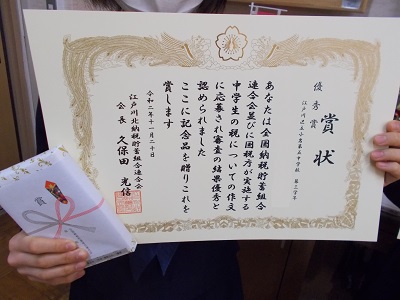 賞状
優秀賞
江戸川区立小岩第五中学校 第三学年
あなたは全国納税貯蓄組合
連合会並びに国税庁が実施する
中学生の税についての作文
に応募され審査の結果優秀と
認められました
ここに記念品を贈りこれを
賞します
令和二年十一月二十日
江戸川北納税貯蓄組合連合会
会長 久保田 光信
賞